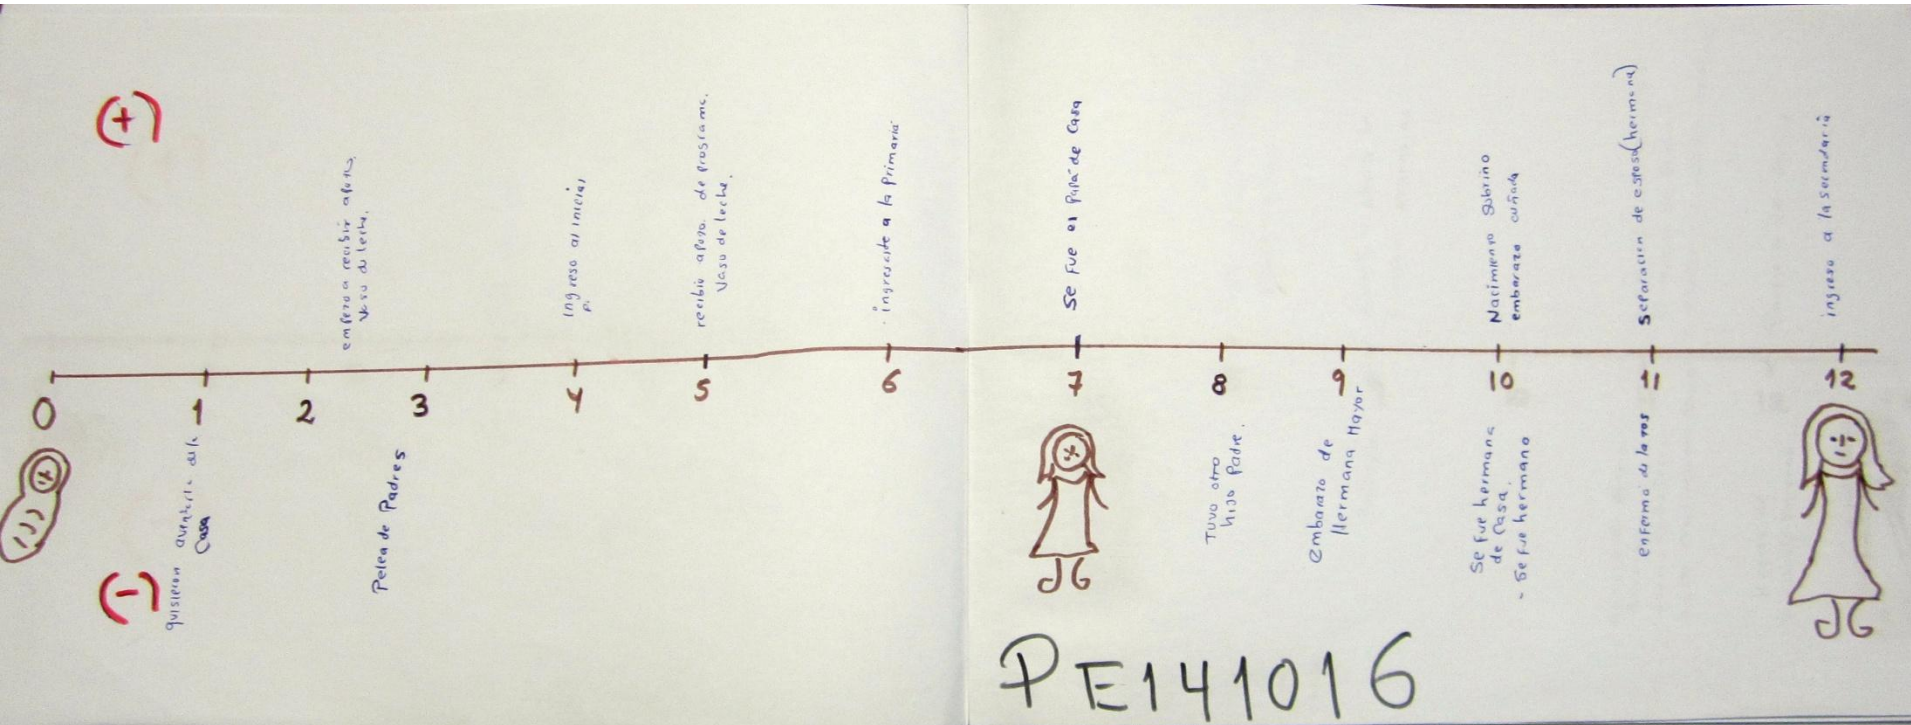 (+)
empezo a recibir apoyo,
Vaso de leche,
Ingreso al inicial
P.
recibio apoyo de programa.
Vaso de leche.
ingresaste a la Primaria
Se fue el Papá de Casa
Nacimiento sobrino
embarazo cuñada
Separacion de esposo(hermana)
ingreso a la secundaria
0
1
2
3
4
5
6
7
8
9
10
11
12
(-)
quisieron aventarla de la
Casa
Pelea de Padres
Tuvo otro
hijo Padre.
embarazo de
Hermana Mayor
Se fue hermana
de Casa.
- Se fue hermano
enfermo de la
PE141016